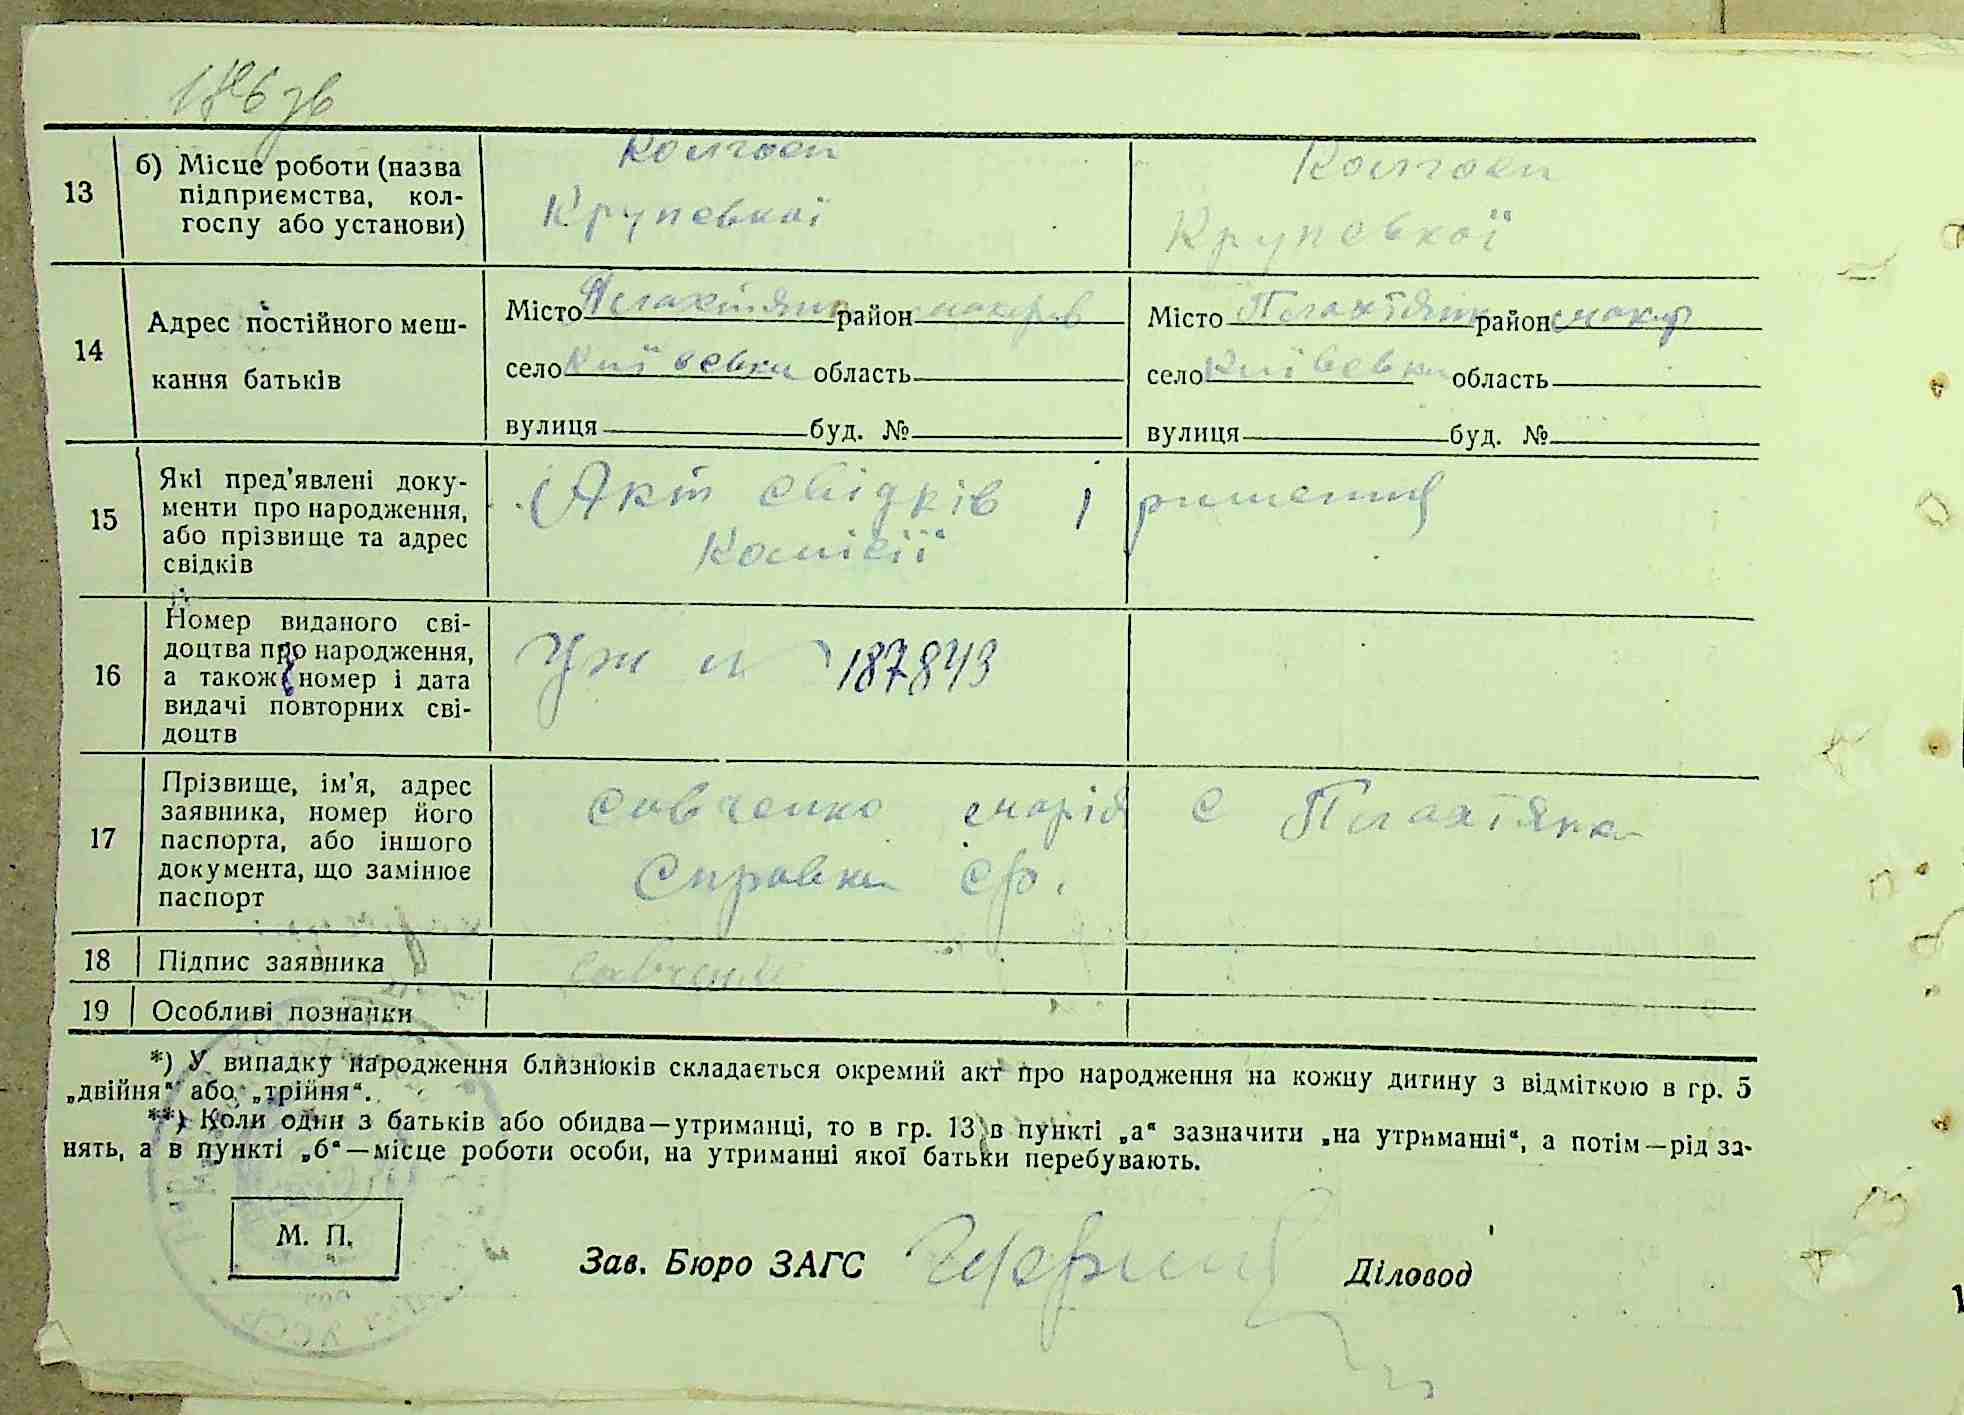 186 зв
13 б) Місце роботи (назва Колгосп Колгосп
підприємства, кол-
госпу або установи) Крупської Крупської
14 Адрес постійного меш-
кання батьків
Місто Плахтянка район макарів Місто Плахтянка район макар
село Київська область село Київська область
вулиця буд. № вулиця буд. №
15 Які пред'явлені доку-
менти про народження,
або прізвище та адрес
свідків
Акт свідків і ришення
Комісії
16 Номер виданого сві-
доцтва про народження,
а також номер і дата
видачі повторних сві-
доцтв
187843
17 Прізвище, ім'я, адрес
заявника, номер його
паспорта, або іншого
документа, що замінює
паспорт
Савченко марія с Плахтянка
Справка ср.
18 Підпис заявника Савченко
19 Особливі позначки
*) У випадку народження близнюків складається окремий акт про народження на кожну дитину з відміткою в гр. 5
„двійня“ або „трійня“.
**) Коли один з батьків або обидва—утриманці, то в гр. 13 в пункті „а“ зазначити „на утриманні“, а потім—рід за-
нять, а в пункті „б“—місце роботи особи, на утриманні якої батьки перебувають.
М. П.
Зав. Бюро ЗАГС Діловод